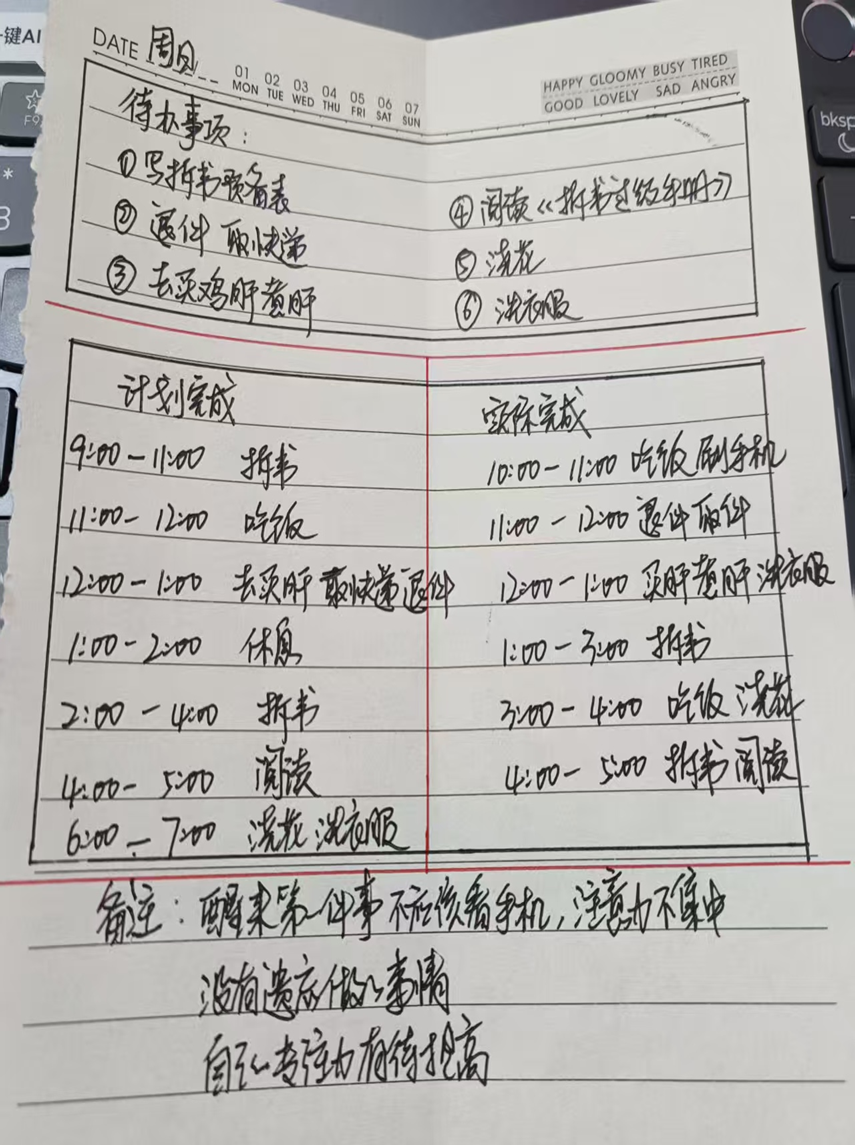 键AI
F9
bksp
DATE 周日
01 02 03 04 05 06 07
MON TUE WED THU FRI SAT SUN
HAPPY GLOOMY BUSY TIRED
GOOD LOVELY SAD ANGRY
待办事项：
①写拆书预备表
②退件 取快递
③去买鸡肝煮肝
④阅读《拆书过级手册》
⑤浇花
⑥洗衣服
计划完成
9:00－11:00 拆书
11:00－12:00 吃饭
12:00－1:00 去买肝 取快递退件
1:00－2:00 休息
2:00－4:00 拆书
4:00－5:00 阅读
6:00－7:00 浇花 洗衣服
实际完成
10:00－11:00 吃饭 刷手机
11:00－12:00 退件 取件
12:00－1:00 买肝煮肝 洗衣服
1:00－3:00 拆书
3:00－4:00 吃饭 浇花
4:00－5:00 拆书 阅读
备注：醒来第一件事不应该看手机，注意力不集中
没有遗忘做的事情
自己专注力有待提高